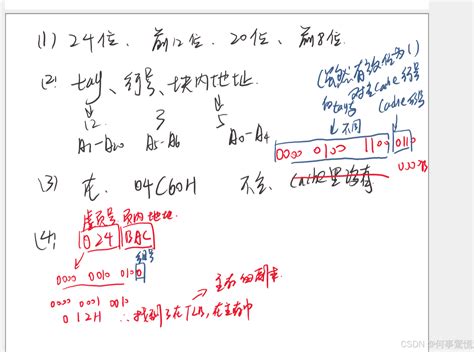 (1) 24位、前12位、20位、前8位.
(2) tag、行号、块内地址
(虽然有效位为1)
对主cache行号
的tag 
cache行号
↓ ↓ ↓ ↓不同
12 3 5
A5-A6 A0-A4
0000 0100 1100 0110
(3) 04C60H 不会. Cache里没有
虚页号 页内地址
(4) 024 BAC
组号
0000 0010 0100
主存的副本
0000 0001 0010
012H ∴找到了在TLB,在主存中
CSDN @何事驚慌